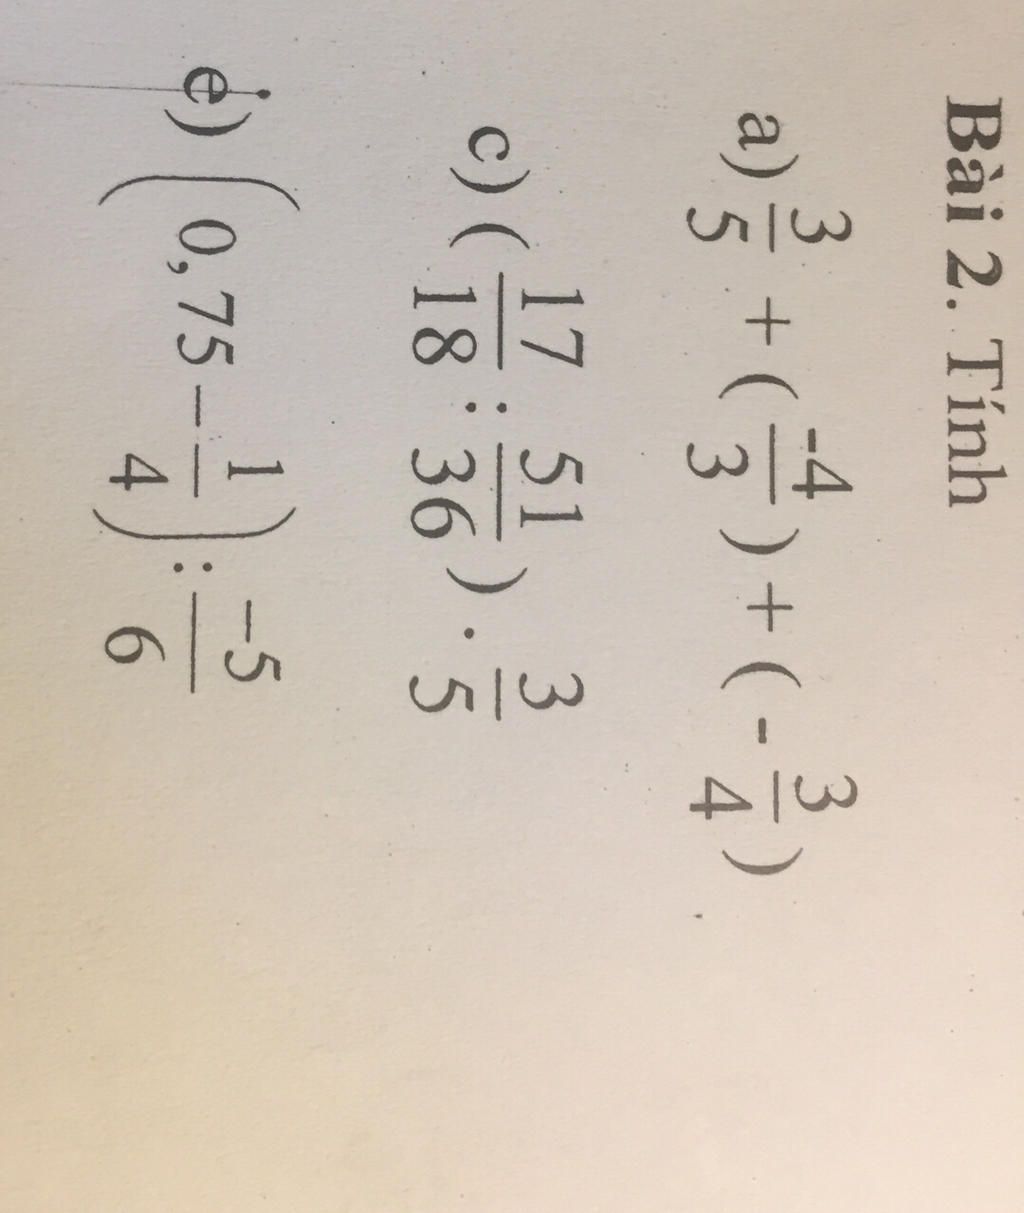 Bài 2. Tính
a) 3/5 + (-4/3) + (- 3/4)
c) (17/18 : 51/36) · 3/5
e) (0,75 - 1/4) : -5/6